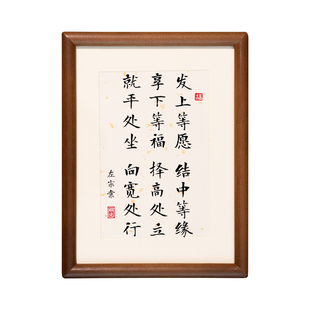 发上等愿 结中等缘
享下等福 择高处立
就平处坐 向宽处行
左宗棠